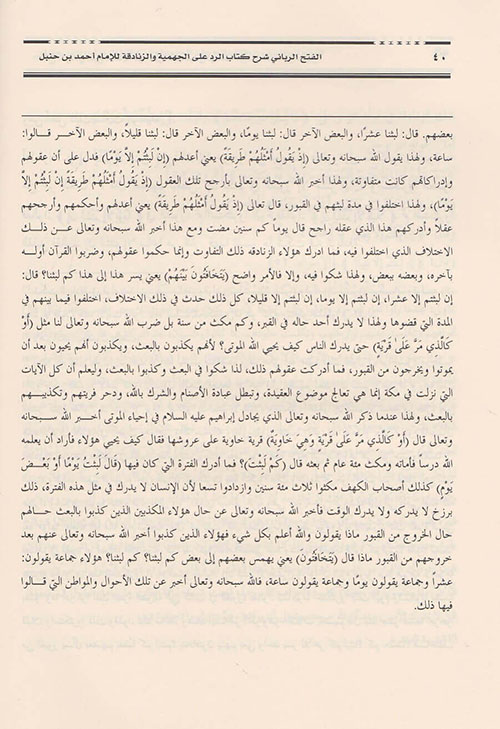 ٤٠ الفتح الرباني شرح كتاب الرد على الجهمية والزنادقة للإمام أحمد بن حنبل
بعضهم. قال: لبثنا عشرًا، والبعض الآخر قال: لبثنا يومًا، والبعض الآخر قال: لبثنا قليلاً، والبعض الآخـر قـالوا:
ساعة، ولهذا يقول الله سبحانه وتعالى (إِذْ يَقُولُ أَمْثَلُهُمْ طَرِيقَةً) يعني أعدلهم (إِنْ لَبِثْتُمْ إِلاَّ يَوْمًا) فدل على أن عقولهم
وإدراكاتهم كانت متفاوتة، ولهذا أخبر الله سبحانه وتعالى بأرجح تلك العقول (إِذْ يَقُولُ أَمْثَلُهُمْ طَرِيقَةً إِنْ لَبِثْتُمْ إِلاَّ
يَوْمًا)، ولهذا اختلفوا في مدة لبثهم في القبور، قال تعالى (إِذْ يَقُولُ أَمْثَلُهُمْ طَرِيقَةً) يعني أعدلهم وأحكمهم وأرجحهم
عقلاً وأدركهم هذا الذي عقله راجح قال يوماً كم سنين مضت ومع هذا أخبر الله سبحانه وتعالى عـن ذلـك
الاختلاف الذي اختلفوا فيه، فما ادرك هؤلاء الزنادقه ذلك التفاوت وإنما حكموا عقولهم، وضربوا القرآن أولـه
بآخره، وبعضه ببعض، ولهذا شكوا فيه، وإلا فالأمر واضح (يَتَخَافَتُونَ بَيْنَهُمْ) يعني يسر هذا إلى هذا كم لبثنا؟ قال:
إن لبثتم إلا عشرا، إن لبثتم إلا يوما، إن لبثتم إلا قليلا، كل ذلك حدث في ذلك الاختلاف، اختلفوا فيما بينهم في
المدة التي قضوها ولهذا لا يدرك أحد حاله في القبر، وكم مكث من سنة بل ضرب الله سبحانه وتعالى لنا مثل (أَوْ
كَالَّذِي مَرَّ عَلَىٰ قَرْيَةٍ) حتى يدرك الناس كيف يحيي الله الموتى؟ لأنهم يكذبون بالبعث، ويكذبون أنهم يحيون بعد أن
يموتوا ويخرجون من القبور، فما أدركت عقولهم ذلك، لذا شكوا في البعث وكذبوا بالبعث، وليعلم أن كل الآيات
التي نزلت في مكة إنما هي تعالج موضوع العقيدة، وتبطل عبادة الأصنام والشرك بالله، ودحر فريتهم وتكذيبـهم
بالبعث، ولهذا عندما ذكر الله سبحانه وتعالى الذي يجادل إبراهيم عليه السلام في إحياء الموتى أخـبر الله سـبحانه
وتعالى قال (أَوْ كَالَّذِي مَرَّ عَلَىٰ قَرْيَةٍ وَهِيَ خَاوِيَةٌ) قرية خاوية على عروشها فقال كيف يحيي هؤلاء فأراد أن يعلمه
الله درساً فأماته ومكث مئة عام ثم بعثه قال (كَمْ لَبِثْتَ)؟ فما أدرك الفترة التي كان فيها (قَالَ لَبِثْتُ يَوْمًا أَوْ بَعْـضَ
يَوْمٍ) كذلك أصحاب الكهف مكثوا ثلاث مئة سنين وازدادوا تسعا لأن الإنسان لا يدرك في مثل هذه الفترة، ذلك
برزخ لا يدركه ولا يدرك الوقت فأخبر الله سبحانه وتعالى عن حال هؤلاء المكذبين الذين كذبوا بالبعث حـالهم
حال الخروج من القبور ماذا يقولون والله أعلم بكل شيء فهؤلاء الذين كذبوا أخبر الله سبحانه وتعالى عنهم بعد
خروجهم من القبور ماذا قال (يَتَخَافَتُونَ) يعني يهمس بعضهم إلى بعض كم لبثنا؟ كم لبثنا؟ هؤلاء جماعة يقولون:
عشراً وجماعة يقولون يومًا وجماعة يقولون ساعة، فالله سبحانه وتعالى أخبر عن تلك الأحوال والمواطن التي قـالوا
فيها ذلك.